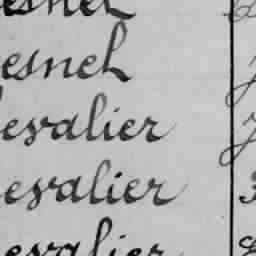 esnel
esnel
evalier
evalier
evalier